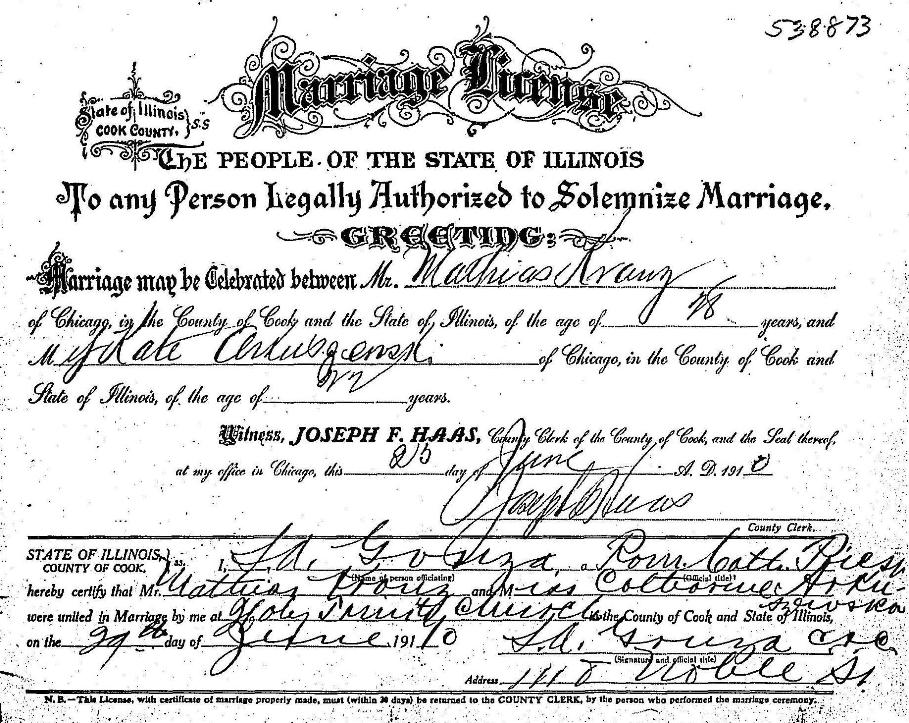 538873
Marriage License
State of Illinois
COOK COUNTY. } S.S
THE PEOPLE OF THE STATE OF ILLINOIS
To any Person Legally Authorized to Solemnize Marriage.
GREETING:
Marriage may be Celebrated between Mr. Mathias Kranz
of Chicago, in the County of Cook and the State of Illinois, of the age of 28 years, and
M iss Kate of Chicago, in the County of Cook and
State of Illinois, of the age of 22 years.
Witness, JOSEPH F. HAAS, County Clerk of the County of Cook, and the Seal thereof,
at my office in Chicago, this 25 day of June A. D. 1910
Joseph F Haas
County Clerk.
STATE OF ILLINOIS, } ss. I, a Rom. Cath. Priest
COUNTY OF COOK,
(Name of person officiating) (Official title)
hereby certify that Mr. Mathias Kranz and Miss Catharine Arku-
szewska
were united in Marriage by me at Holy Trinity Church in the County of Cook and State of Illinois,
on the 29th day of June 1910
(Signature and official title)
Address 1118 Noble St
N. B.—This License, with certificate of marriage properly made, must (within 30 days) be returned to the COUNTY CLERK, by the person who performed the marriage ceremony.